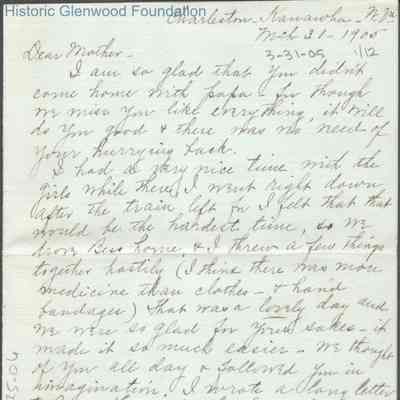 Historic Glenwood Foundation
Charleston, Kanawha - W. Va
Mch 31 - 1905
3-31-05 1/12
Dear Mother -
I am so glad that you didn't
come home with papa - for though
we miss you like everything, it will
do you good & there was no need of
your hurrying back.
I had a very nice time with the
girls while there, I went right down
after the train left for I felt that that
would be the hardest time, so we
drove Bess home, & I threw a few things
together hastily (I think there was more
medicine than clothes - & hand
bandages) That was a lovely day and
we were so glad for your sakes - it
made it so much easier - We thought
of you all day & followed you in
imagination. I wrote a long letter